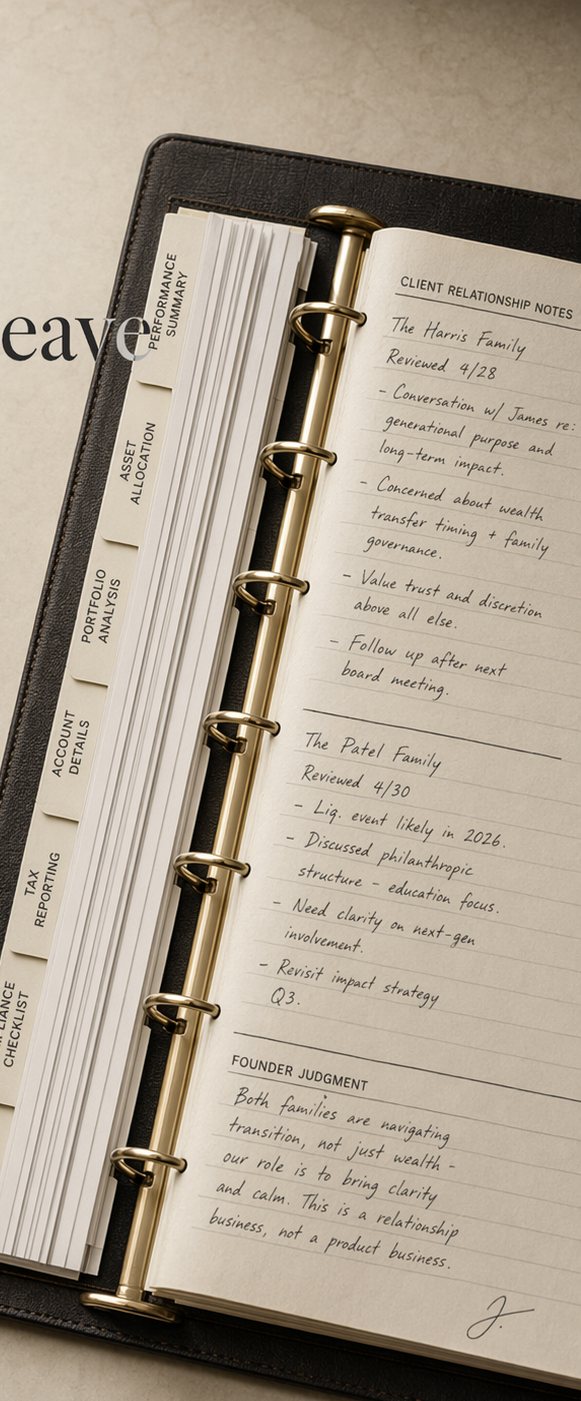 eave
PERFORMANCE
SUMMARY
ASSET
ALLOCATION
PORTFOLIO
ANALYSIS
ACCOUNT
DETAILS
TAX
REPORTING
PLIANCE
CHECKLIST
CLIENT RELATIONSHIP NOTES
The Harris Family
Reviewed 4/28
- Conversation w/ James re:
generational purpose and
long-term impact.
- Concerned about wealth
transfer timing + family
governance.
- Value trust and discretion
above all else.
- Follow up after next
board meeting.
The Patel Family
Reviewed 4/30
- Liq. event likely in 2026.
- Discussed philanthropic
structure - education focus.
- Need clarity on next-gen
involvement.
- Revisit impact strategy
Q3.
FOUNDER JUDGMENT
Both families are navigating
transition, not just wealth -
our role is to bring clarity
and calm. This is a relationship
business, not a product business.
J.